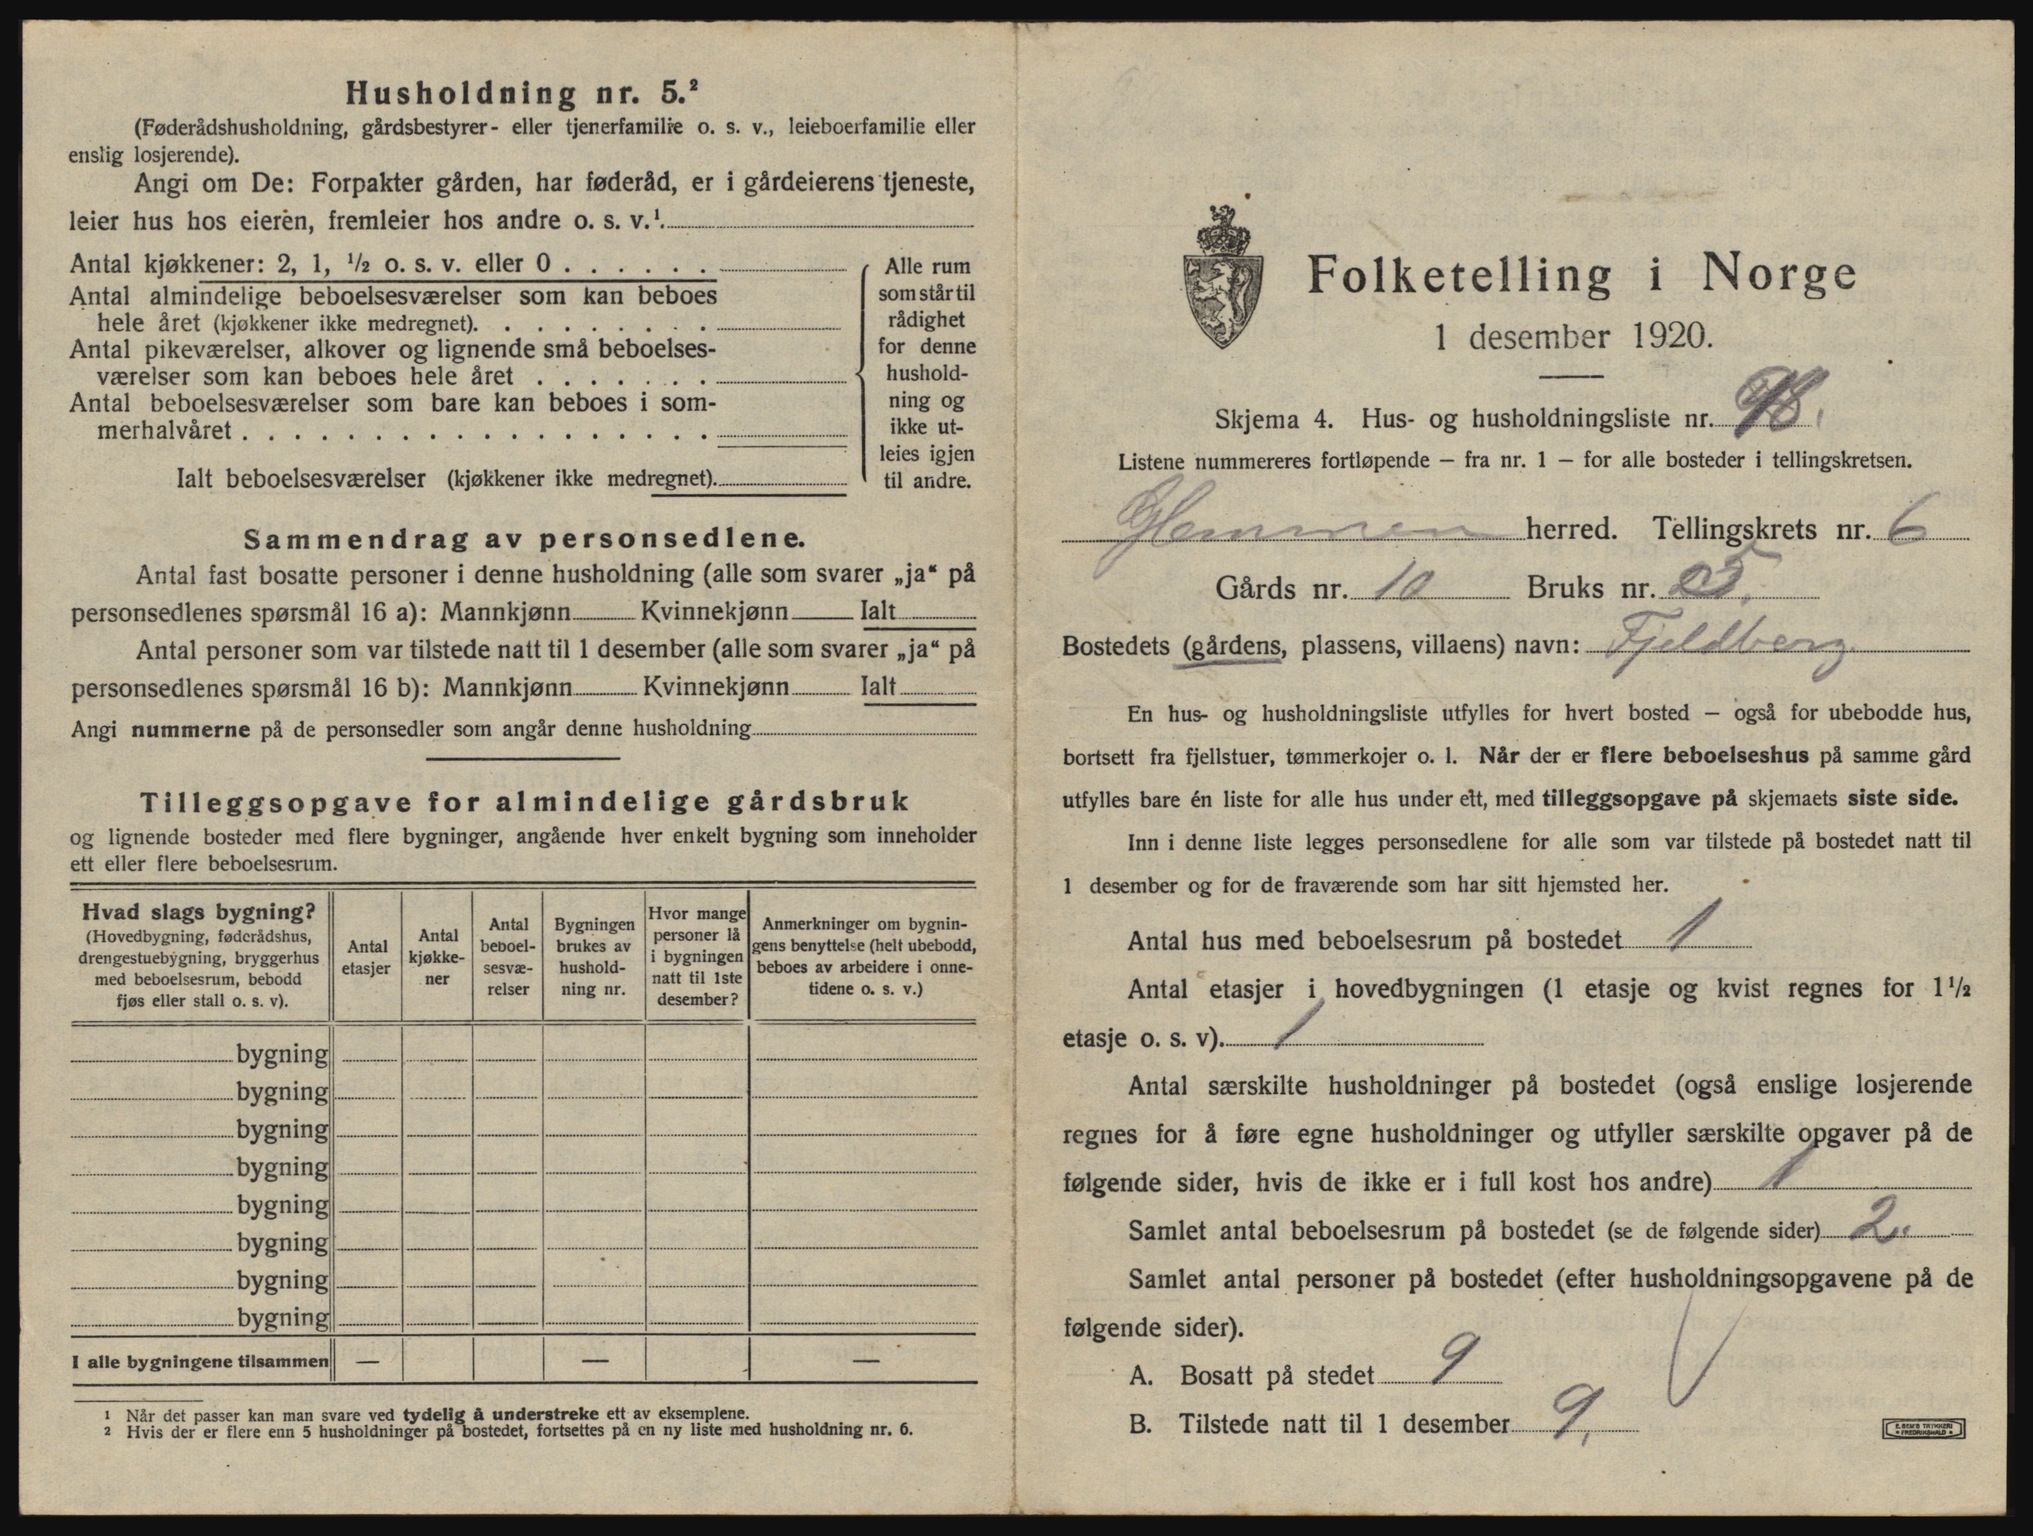 Husholdning nr. 5.²
(Føderådshusholdning, gårdsbestyrer- eller tjenerfamilie o. s. v., leieboerfamilie eller
enslig losjerende).
Angi om De: Forpakter gården, har føderåd, er i gårdeierens tjeneste,
leier hus hos eieren, fremleier hos andre o. s. v.¹.
Antal kjøkkener: 2, 1, ½ o. s. v. eller 0 . . . . . .
Antal almindelige beboelsesværelser som kan beboes
hele året (kjøkkener ikke medregnet). . . . . . . . .
Antal pikeværelser, alkover og lignende små beboelses-
værelser som kan beboes hele året . . . . . . .
Antal beboelsesværelser som bare kan beboes i som-
merhalvåret . . . . . . . . . . . . . . . . . .
Ialt beboelsesværelser (kjøkkener ikke medregnet).
Alle rum
som står til
rådighet
for denne
hushold-
ning og
ikke ut-
leies igjen
til andre.
Sammendrag av personsedlene.
Antal fast bosatte personer i denne husholdning (alle som svarer „ja“ på
personsedlenes spørsmål 16 a): Mannkjønn Kvinnekjønn Ialt
Antal personer som var tilstede natt til 1 desember (alle som svarer „ja“ på
personsedlenes spørsmål 16 b): Mannkjønn Kvinnekjønn Ialt
Angi nummerne på de personsedler som angår denne husholdning
Tilleggsopgave for almindelige gårdsbruk
og lignende bosteder med flere bygninger, angående hver enkelt bygning som inneholder
ett eller flere beboelsesrum.
Hvad slags bygning?
(Hovedbygning, føderådshus,
drengestuebygning, bryggerhus
med beboelsesrum, bebodd
fjøs eller stall o. s. v).
Antal
etasjer
Antal
kjøkke-
ner
Antal
beboel-
sesvæ-
relser
Bygningen
brukes av
hushold-
ning nr.
Hvor mange
personer lå
i bygningen
natt til 1ste
desember?
Anmerkninger om bygnin-
gens benyttelse (helt ubebodd,
beboes av arbeidere i onne-
tidene o. s. v.)
bygning
bygning
bygning
bygning
bygning
bygning
bygning
bygning
I alle bygningene tilsammen — — —
¹ Når det passer kan man svare ved tydelig å understreke ett av eksemplene.
² Hvis der er flere enn 5 husholdninger på bostedet, fortsettes på en ny liste med husholdning nr. 6.
Folketelling i Norge
1 desember 1920.
Skjema 4. Hus- og husholdningsliste nr.
Listene nummereres fortløpende — fra nr. 1 — for alle bosteder i tellingskretsen.
Glemmen herred. Tellingskrets nr. 6
Gårds nr. 10 Bruks nr. 5.
Bostedets (gårdens, plassens, villaens) navn: Fjeldberg
En hus- og husholdningsliste utfylles for hvert bosted — også for ubebodde hus,
bortsett fra fjellstuer, tømmerkojer o. l. Når der er flere beboelseshus på samme gård
utfylles bare én liste for alle hus under ett, med tilleggsopgave på skjemaets siste side.
Inn i denne liste legges personsedlene for alle som var tilstede på bostedet natt til
1 desember og for de fraværende som har sitt hjemsted her.
Antal hus med beboelsesrum på bostedet 1
Antal etasjer i hovedbygningen (1 etasje og kvist regnes for 1½
etasje o. s. v). 1
Antal særskilte husholdninger på bostedet (også enslige losjerende
regnes for å føre egne husholdninger og utfyller særskilte opgaver på de
følgende sider, hvis de ikke er i full kost hos andre) 1
Samlet antal beboelsesrum på bostedet (se de følgende sider) 2
Samlet antal personer på bostedet (efter husholdningsopgavene på de
følgende sider).
A. Bosatt på stedet 9
B. Tilstede natt til 1 desember 9.